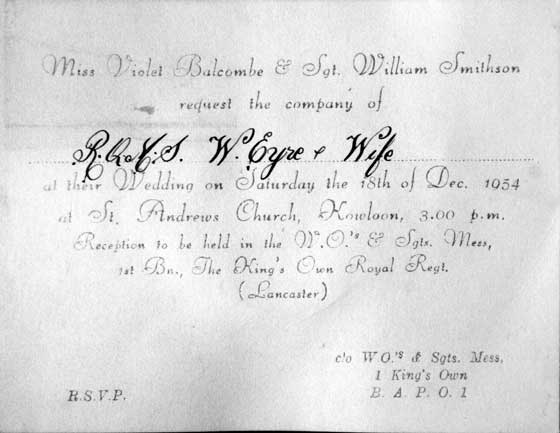 Miss Violet Balcombe & Sgt. William Smithson
request the company of
R.Q.M.S. W. Eyre & Wife
at their Wedding on Saturday the 18th of Dec. 1954
at St. Andrews Church, Kowloon, 3.00 p.m.
Reception to be held in the W.O.'s & Sgts. Mess,
1st Bn., The King's Own Royal Regt.
(Lancaster)
c/o W.O.'s & Sgts. Mess,
1 King's Own
R.S.V.P. B. A. P. O. 1